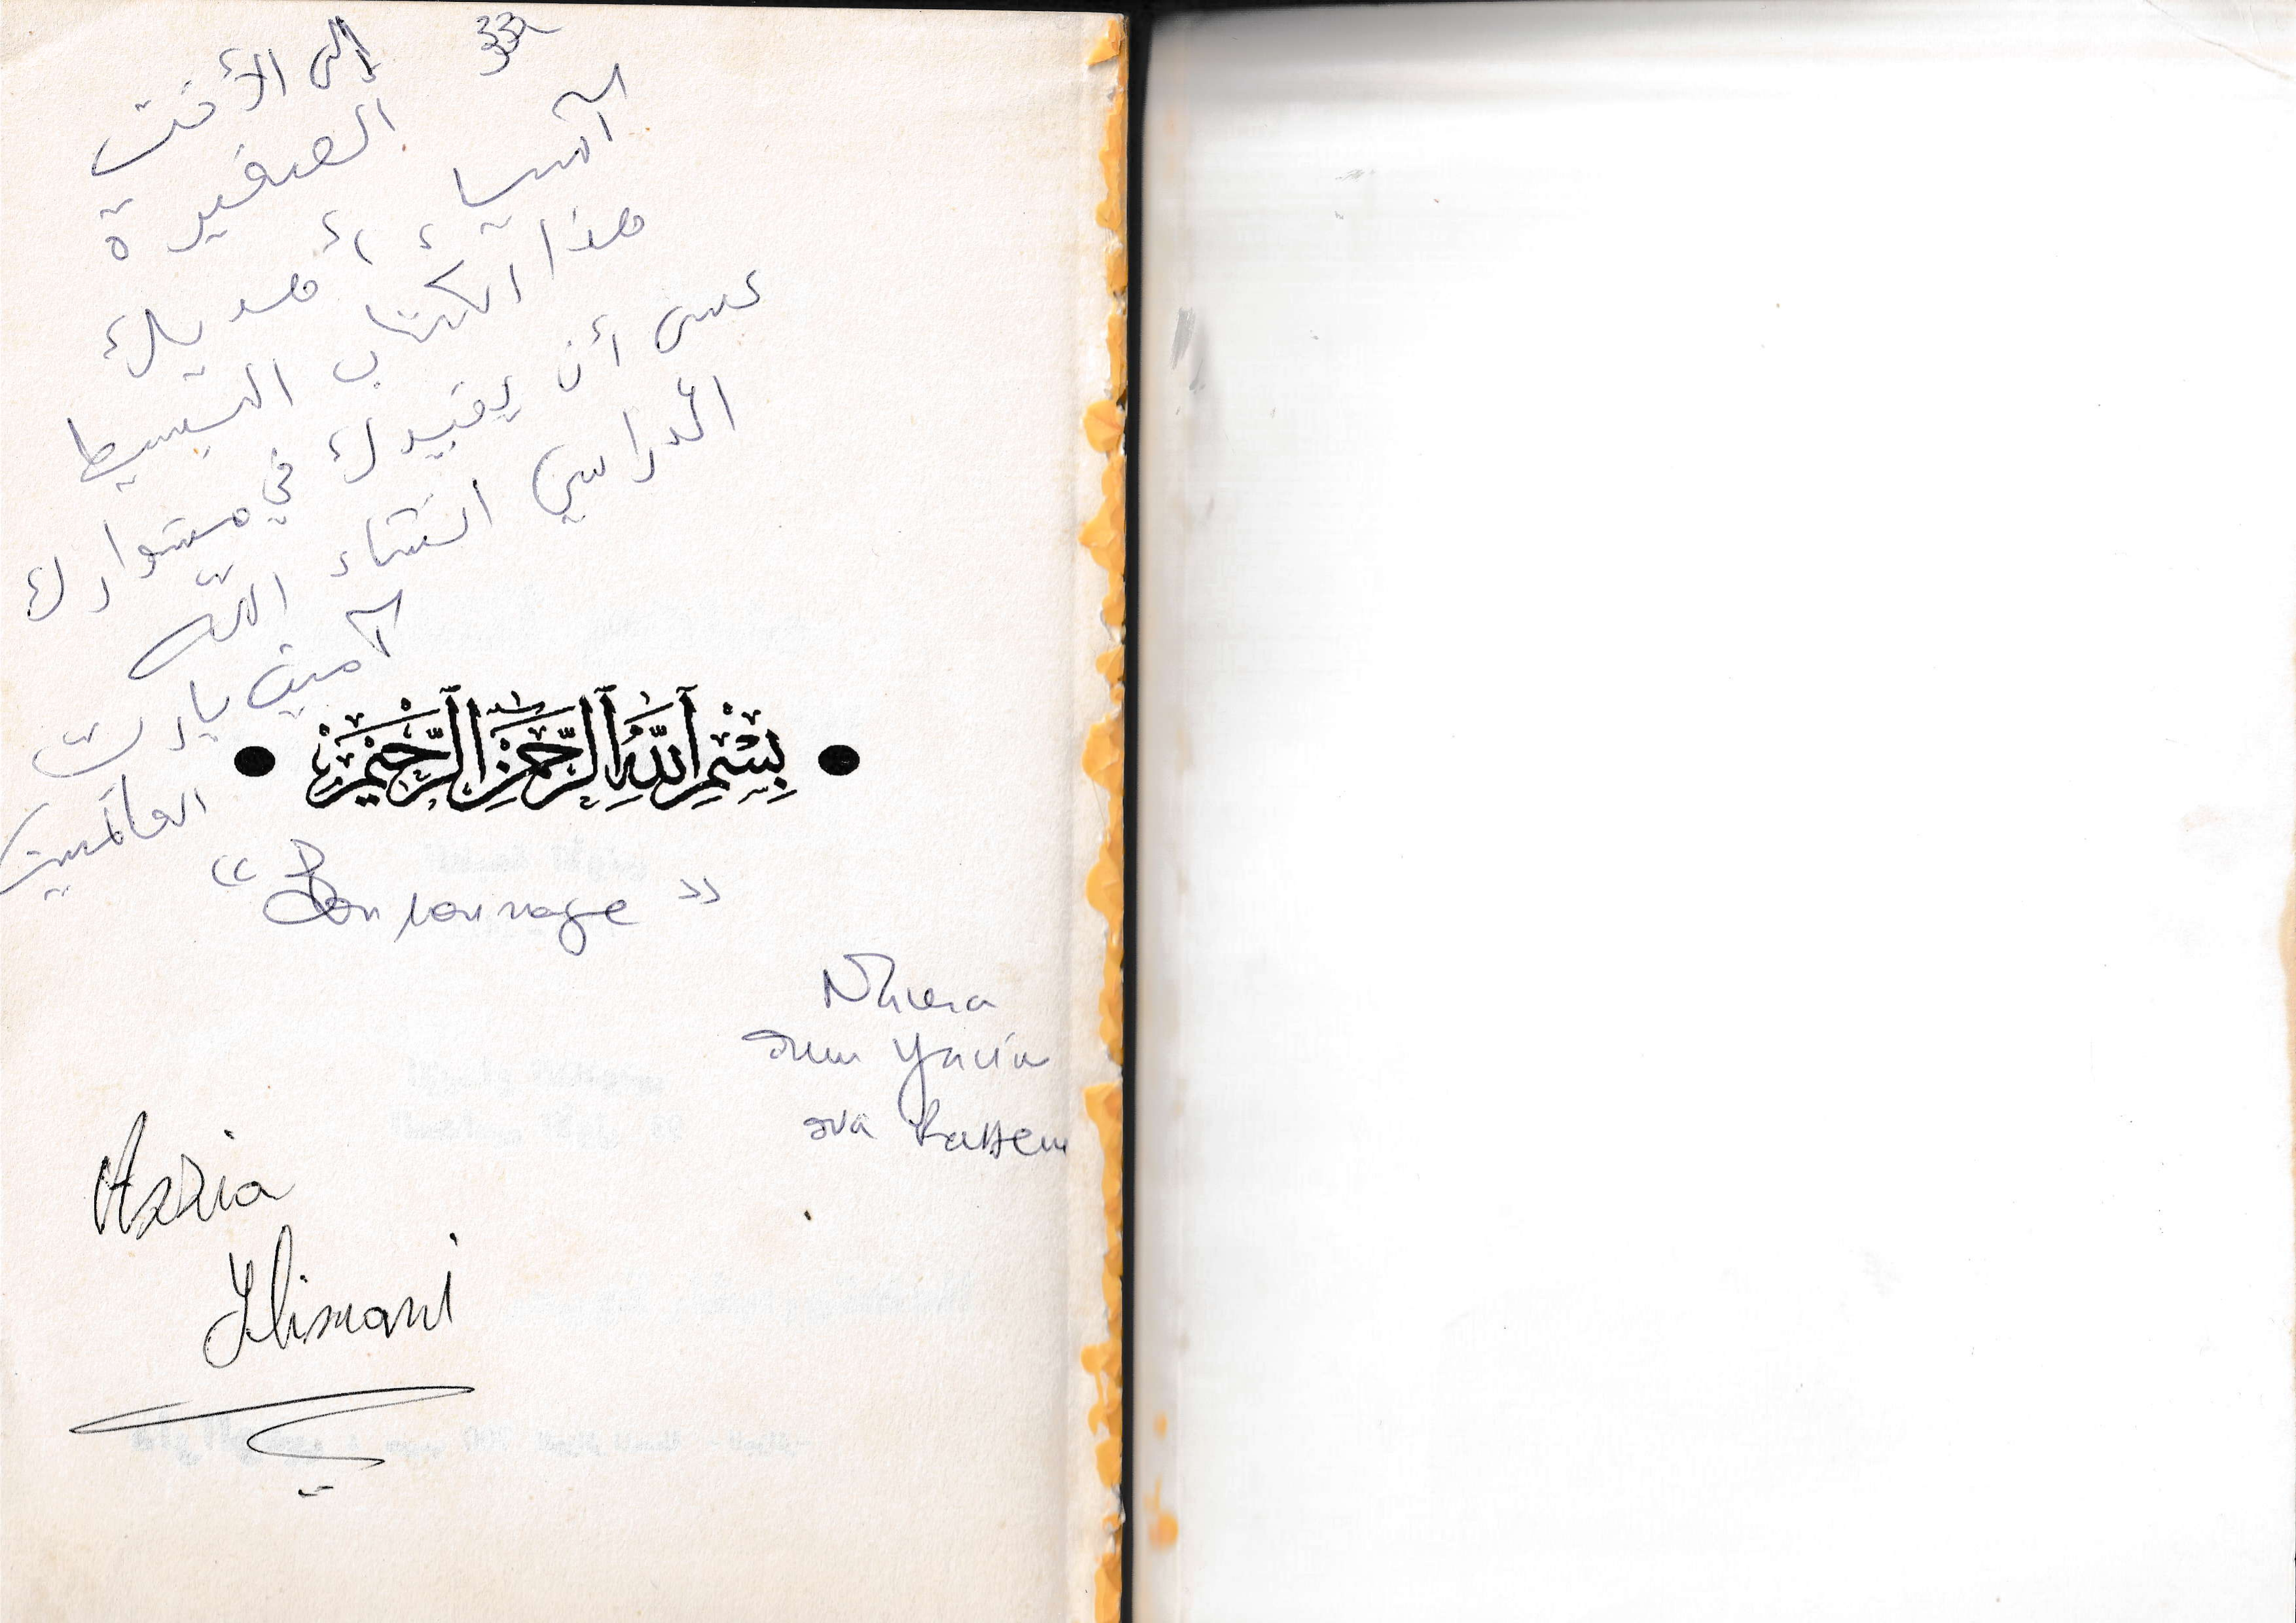 إلى الأخت
الصغيرة
آسياء أهديك
هذا الكتاب البسيط
عسى أن يفيدك في مشوارك
الدراسي انشاء الله
آمين يارب
العالمين
بسم الله الرحمن الرحيم
" Bon courage "
oum Yacin
Assia
Slimani